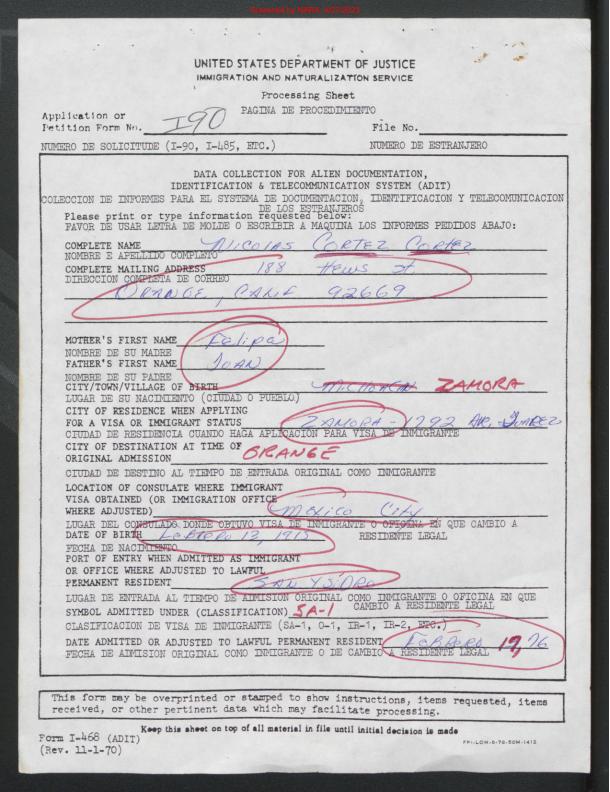 Scanned by NARA, 4/27/2023
UNITED STATES DEPARTMENT OF JUSTICE
IMMIGRATION AND NATURALIZATION SERVICE
Processing Sheet
PAGINA DE PROCEDIMIENTO
Application or
Petition Form No. I90 File No.
NUMERO DE SOLICITUDE (I-90, I-485, ETC.) NUMERO DE ESTRANJERO
DATA COLLECTION FOR ALIEN DOCUMENTATION,
IDENTIFICATION & TELECOMMUNICATION SYSTEM (ADIT)
COLECCION DE INFORMES PARA EL SYSTEMA DE DOCUMENTACION, IDENTIFICACION Y TELECOMUNICACION
DE LOS ESTRANJEROS
Please print or type information requested below:
FAVOR DE USAR LETRA DE MOLDE O ESCRIBIR A MAQUINA LOS INFORMES PEDIDOS ABAJO:
COMPLETE NAME Nicolas CORTEZ CORTEZ
NOMBRE E APELLIDO COMPLETO
COMPLETE MAILING ADDRESS 188 Hews st
DIRECCION COMPLETA DE CORREO
ORANGE, CALIF 92669
MOTHER'S FIRST NAME Felipa
NOMBRE DE SU MADRE
FATHER'S FIRST NAME JUAN
NOMBRE DE SU PADRE
CITY/TOWN/VILLAGE OF BIRTH ZAMORA
LUGAR DE SU NACIMIENTO (CIUDAD O PUEBLO)
CITY OF RESIDENCE WHEN APPLYING
FOR A VISA OR IMMIGRANT STATUS ZAMORA - 1792 AVE. JUAREZ
CIUDAD DE RESIDENCIA CUANDO HAGA APLICACION PARA VISA DE INMIGRANTE
CITY OF DESTINATION AT TIME OF
ORIGINAL ADMISSION ORANGE
CIUDAD DE DESTINO AL TIEMPO DE ENTRADA ORIGINAL COMO INMIGRANTE
LOCATION OF CONSULATE WHERE IMMIGRANT
VISA OBTAINED (OR IMMIGRATION OFFICE
WHERE ADJUSTED) Mexico City
LUGAR DEL CONSULADO DONDE OBTUVO VISA DE INMIGRANTE O OFICINA EN QUE CAMBIO A
DATE OF BIRTH FEBRERO 13, 1915 RESIDENTE LEGAL
FECHA DE NACIMIENTO
PORT OF ENTRY WHEN ADMITTED AS IMMIGRANT
OR OFFICE WHERE ADJUSTED TO LAWFUL
PERMANENT RESIDENT SAN YSIDRO
LUGAR DE ENTRADA AL TIEMPO DE AIMISION ORIGINAL COMO INMIGRANTE O OFICINA EN QUE
SYMBOL ADMITTED UNDER (CLASSIFICATION) SA-1 CAMBIO A RESIDENTE LEGAL
CLASIFICACION DE VISA DE INMIGRANTE (SA-1, O-1, IR-1, IR-2, ETC.)
DATE ADMITTED OR ADJUSTED TO LAWFUL PERMANENT RESIDENT FEBRERO 19, 76
FECHA DE AIMISION ORIGINAL COMO INMIGRANTE O DE CAMBIO A RESIDENTE LEGAL
This form may be overprinted or stamped to show instructions, items requested, items
received, or other pertinent data which may facilitate processing.
Keep this sheet on top of all material in file until initial decision is made
Form I-468 (ADIT)
(Rev. 11-1-70)